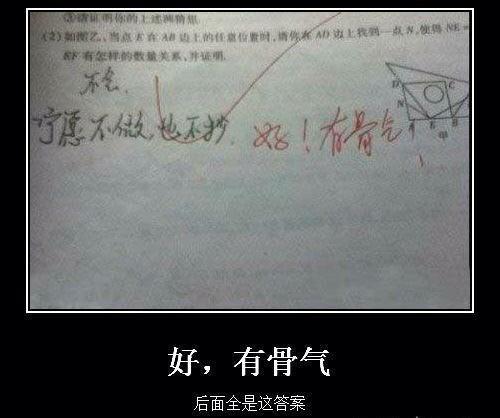 ③请证明你的上述两猜想.
(2)如图乙,当点 E 在 AB 边上的任意位置时,请你在 AD 边上找到一点 N,使得 NE=
EF 有怎样的数量关系,并证明.
不会.
宁愿不做,也不抄. 好！有骨气！
D
C
N
A E B
甲
好，有骨气
后面全是这答案